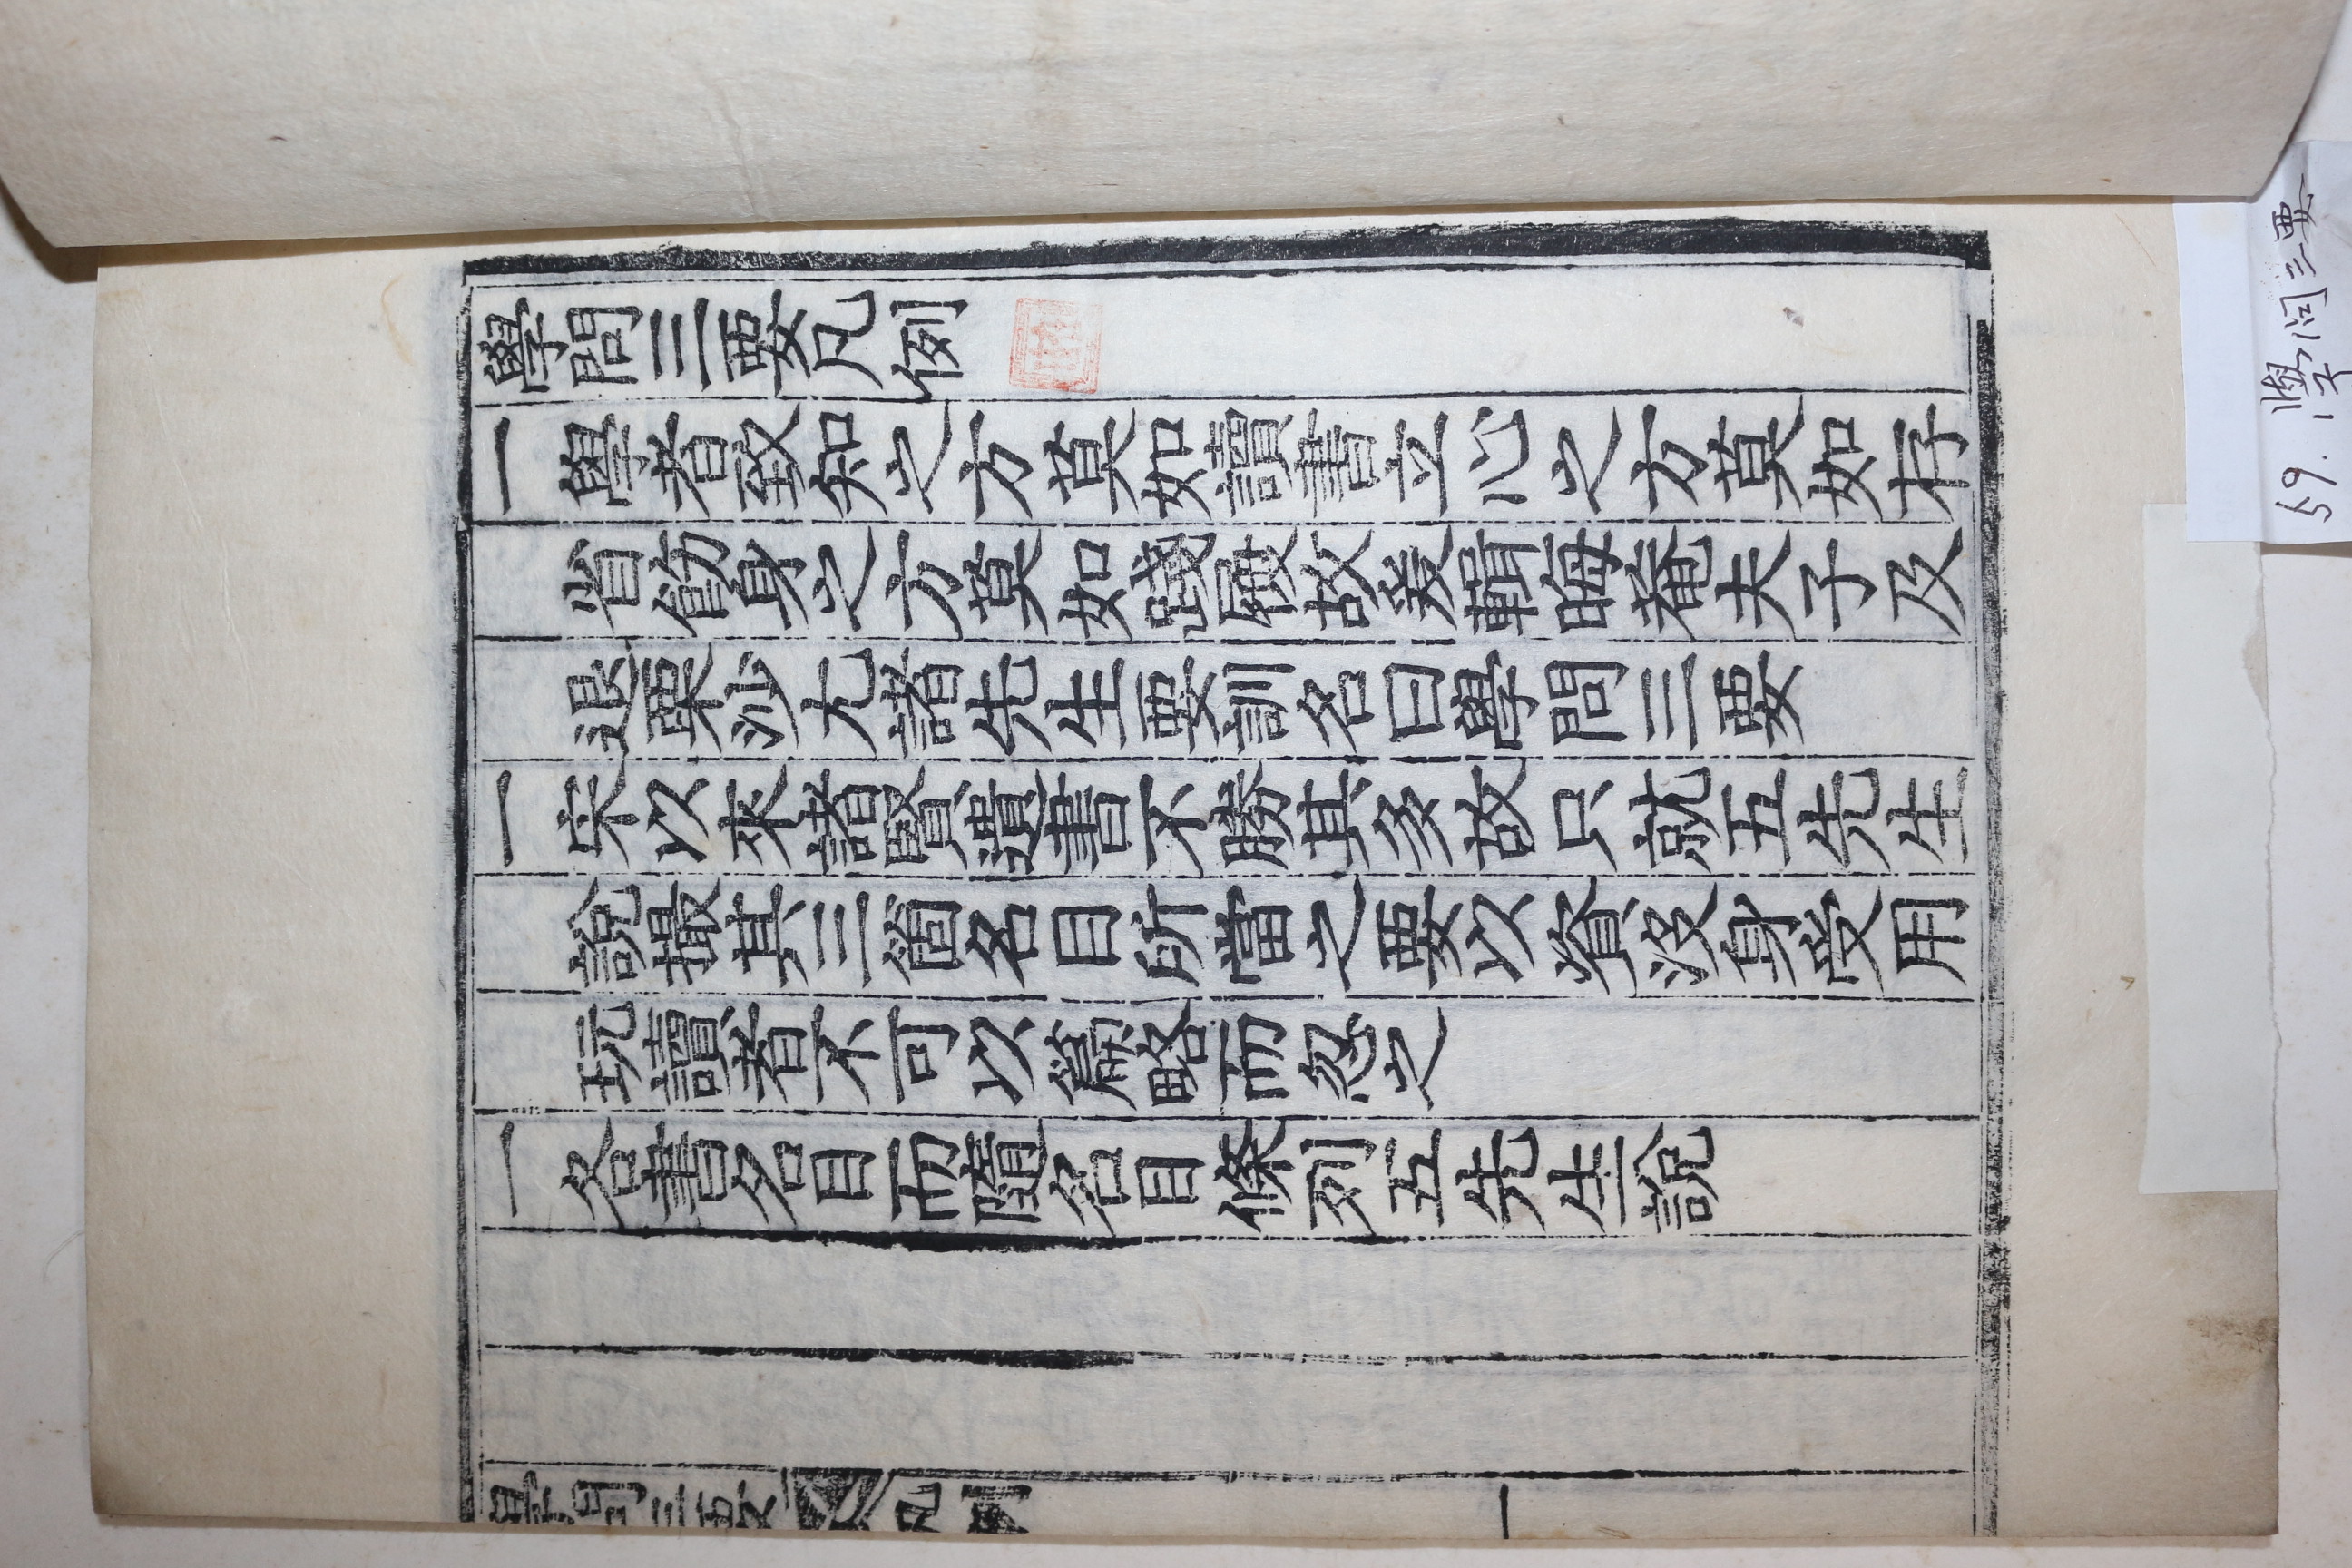 學問三要凡例
一學者致知之方莫如讀書立心之方莫如存
省飭身之方莫如踐履故爰輯晦菴夫子及
退栗沙尤諸先生要訓名曰學問三要
一宋以來諸賢遺書不勝其多故只就五先生
說撮其三箇名目所當之要以資沒身受用
玩讀者不可以篇略而忽之
一各書名目而隨名目條列五先生說
學問三要 凡例 一
59. 學問三要